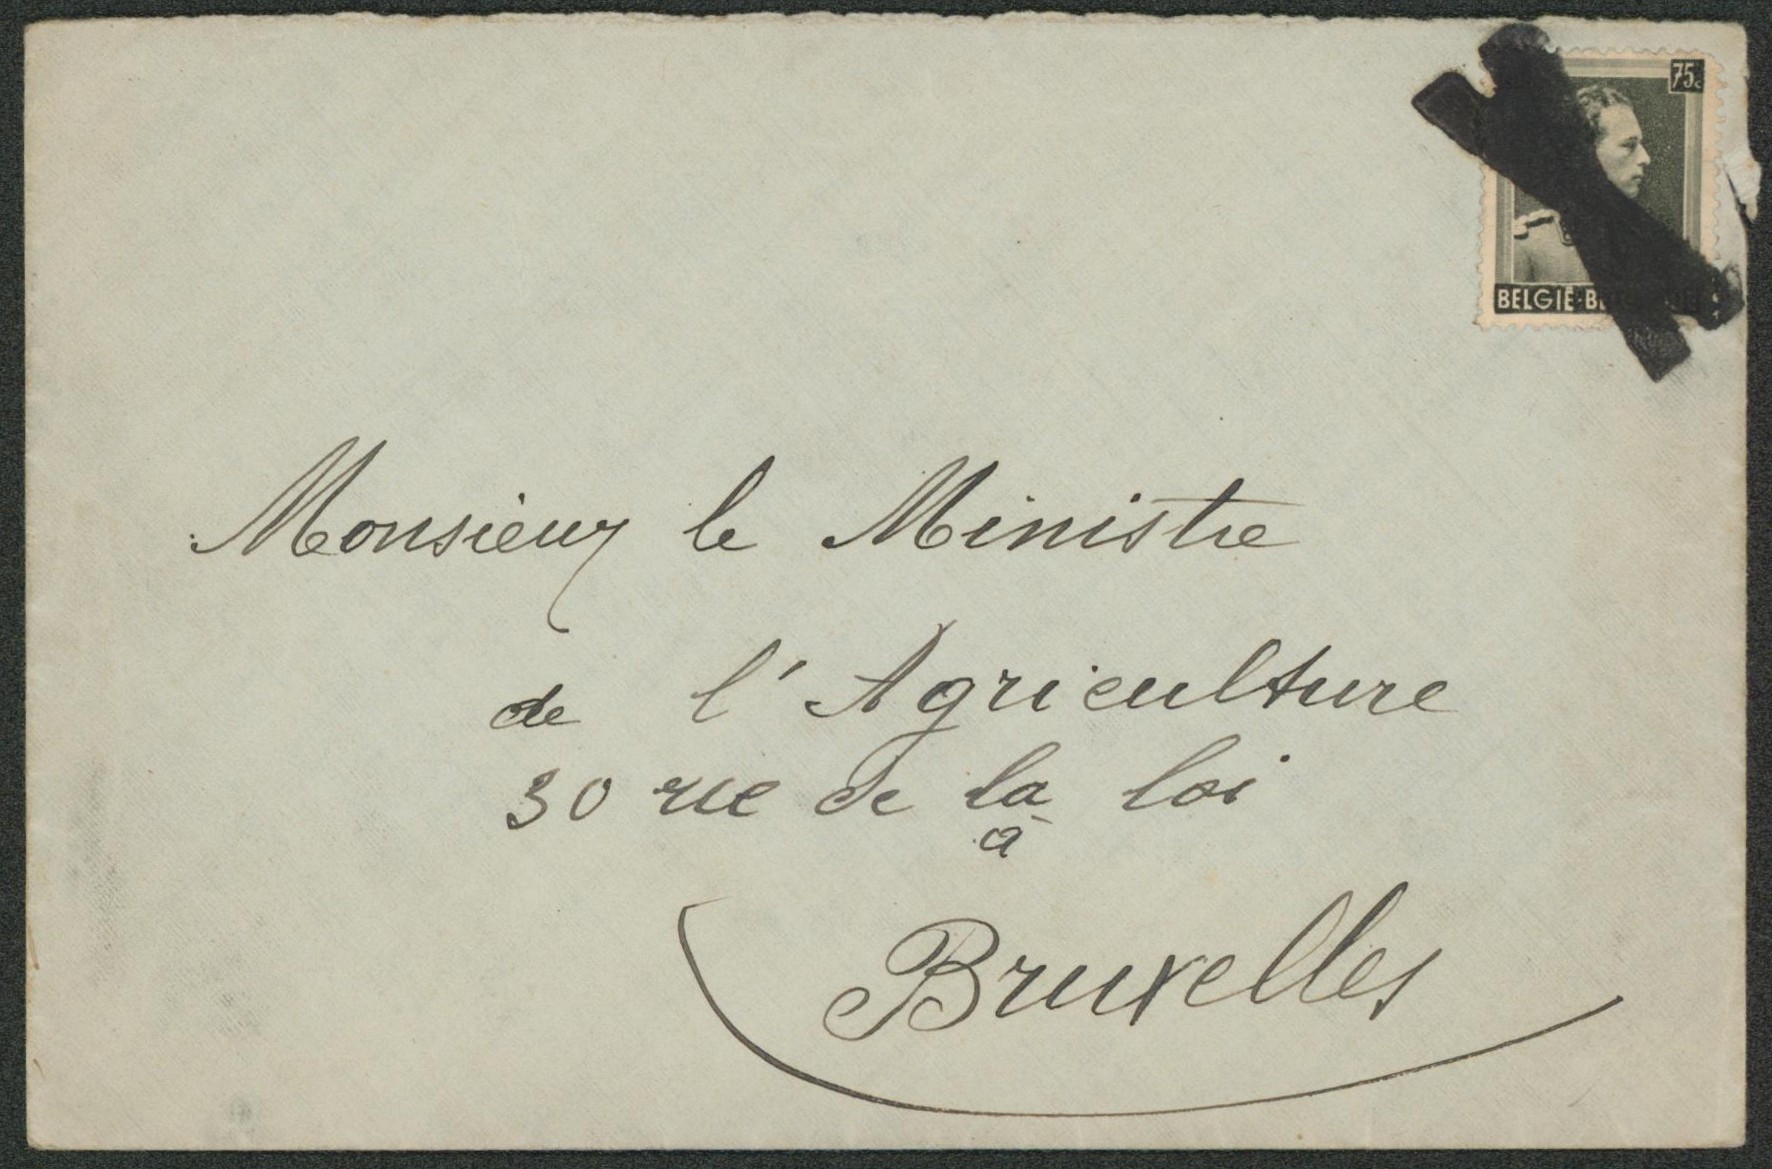 75c
BELGIE-B
Monsieur le Ministre
de l'Agriculture
30 rue de la loi
à
Bruxelles